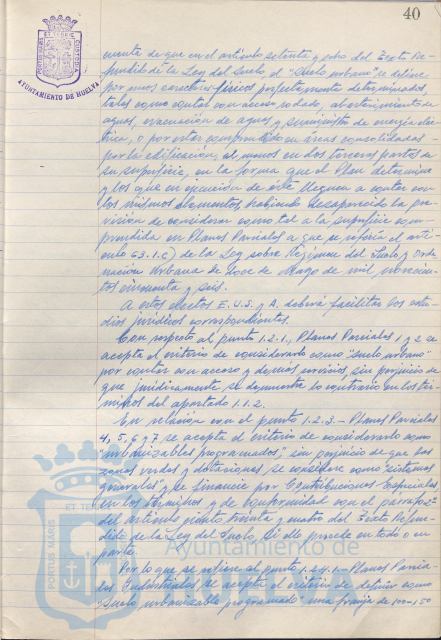 40
PORTUS MARIS
ET TERRE
CUSTODIA
AYUNTAMIENTO DE HUELVA
cuenta de que en el artículo setenta y ocho del Texto Re-
fundido de la Ley del Suelo, el "Suelo urbano" se define
por unos caracteres físicos perfectamente determinados,
tales como contar con acceso rodado, abastecimiento de
aguas, evacuación de aguas y suministro de energía eléc-
trica, o por estar comprendido en áreas consolidadas
por la edificación, al menos en dos terceras partes de
su superficie, en la forma que el Plan determine
y los que en ejecución de éste lleguen a contar con
los mismos elementos, habiendo desaparecido la pre-
visión de considerar como tal a la superficie com-
prendida en Planos Parciales a que se refería el artí-
culo 63.1.C) de la Ley sobre Régimen del Suelo y Orde-
nación Urbana de doce de Mayo de mil novecien-
tos cincuenta y seis.
A estos efectos E.U.S. y A. deberá facilitar los estu-
dios jurídicos correspondientes.
Con respecto al punto 1.2.1., Planos Parciales 1 y 2 se
acepta el criterio de considerarlo como "Suelo urbano"
por contar con acceso y demás servicios, sin perjuicio de
que jurídicamente se demuestre lo contrario en los tér-
minos del apartado 1.1.2.
En relación con el punto 1.2.3.- Planos Parciales
4, 5, 6 y 7 se acepta el criterio de considerarlo como
"urbanizables programados", sin perjuicio de que las
zonas verdes y dotaciones se considere como "sistemas
generales" y se financie por Contribuciones Especiales
en los términos y de conformidad con el párrafo 2º
del artículo ciento treinta y cuatro del Texto Refun-
dido de la Ley del Suelo, si ello procede en todo o en
parte.
Por lo que se refiere al punto 1.2.4.1.- Planos Parcia-
les Industriales, se acepta el criterio de definir como
"Suelo urbanizable programado" una franja de 100-150
PORTUS MARIS
ET TE
Ayuntamiento de